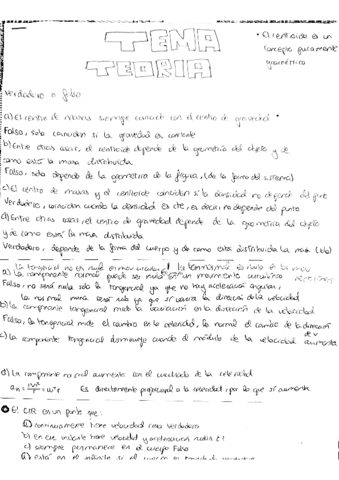 TEMA
TEORIA
• El centroide es un
concepto puramente
geometrico
Verdadero o falso
a) El centro de masas siempre coincide con el centro de gravedad
Falso, solo coinciden si la gravedad es constante
b) Entre otras cosas, el centroide depende de la geometria del objeto y de
como esté la masa distribuida.
Falso, solo depende de la geometria de la figura, (de la forma del sistema)
c) El centro de masas y el centroide coinciden si la densidad no depende del punto
Verdadero, coinciden cuando la densidad es cte, es decir, no depende del punto
d) Entre otras cosas, el centro de gravedad depende de la geometria del objeto
y de como está la masa distribuida
Verdadero, depende de la forma del cuerpo y de como esta distribuida la masa
a) La componente tangencial puede ser nula en un movimiento
Falso, no será nula solo la tangencial ya que no hay aceleracion angular,
la normal nunca será nula ya que si varia la direccion de la velocidad
b) la componente tangencial mide la variación en la direccion de la velocidad
Falso, la tangencial mide el cambio en la celeridad, la normal el cambio de la direccion
de v
c) la componente tangencial disminuye cuando el modulo de la velocidad aumenta
d) La componente normal aumenta con el cuadrado de la celeridad
Es directamente proporcional a la celeridad, por lo que si aumenta
El CIR es un punto que:
a) continuamente tiene velocidad cero verdadero
b) en ese instante tiene velocidad y aceleracion nulas
c) siempre permanece en el cuerpo Falso
d) está en el infinito si el cuerpo